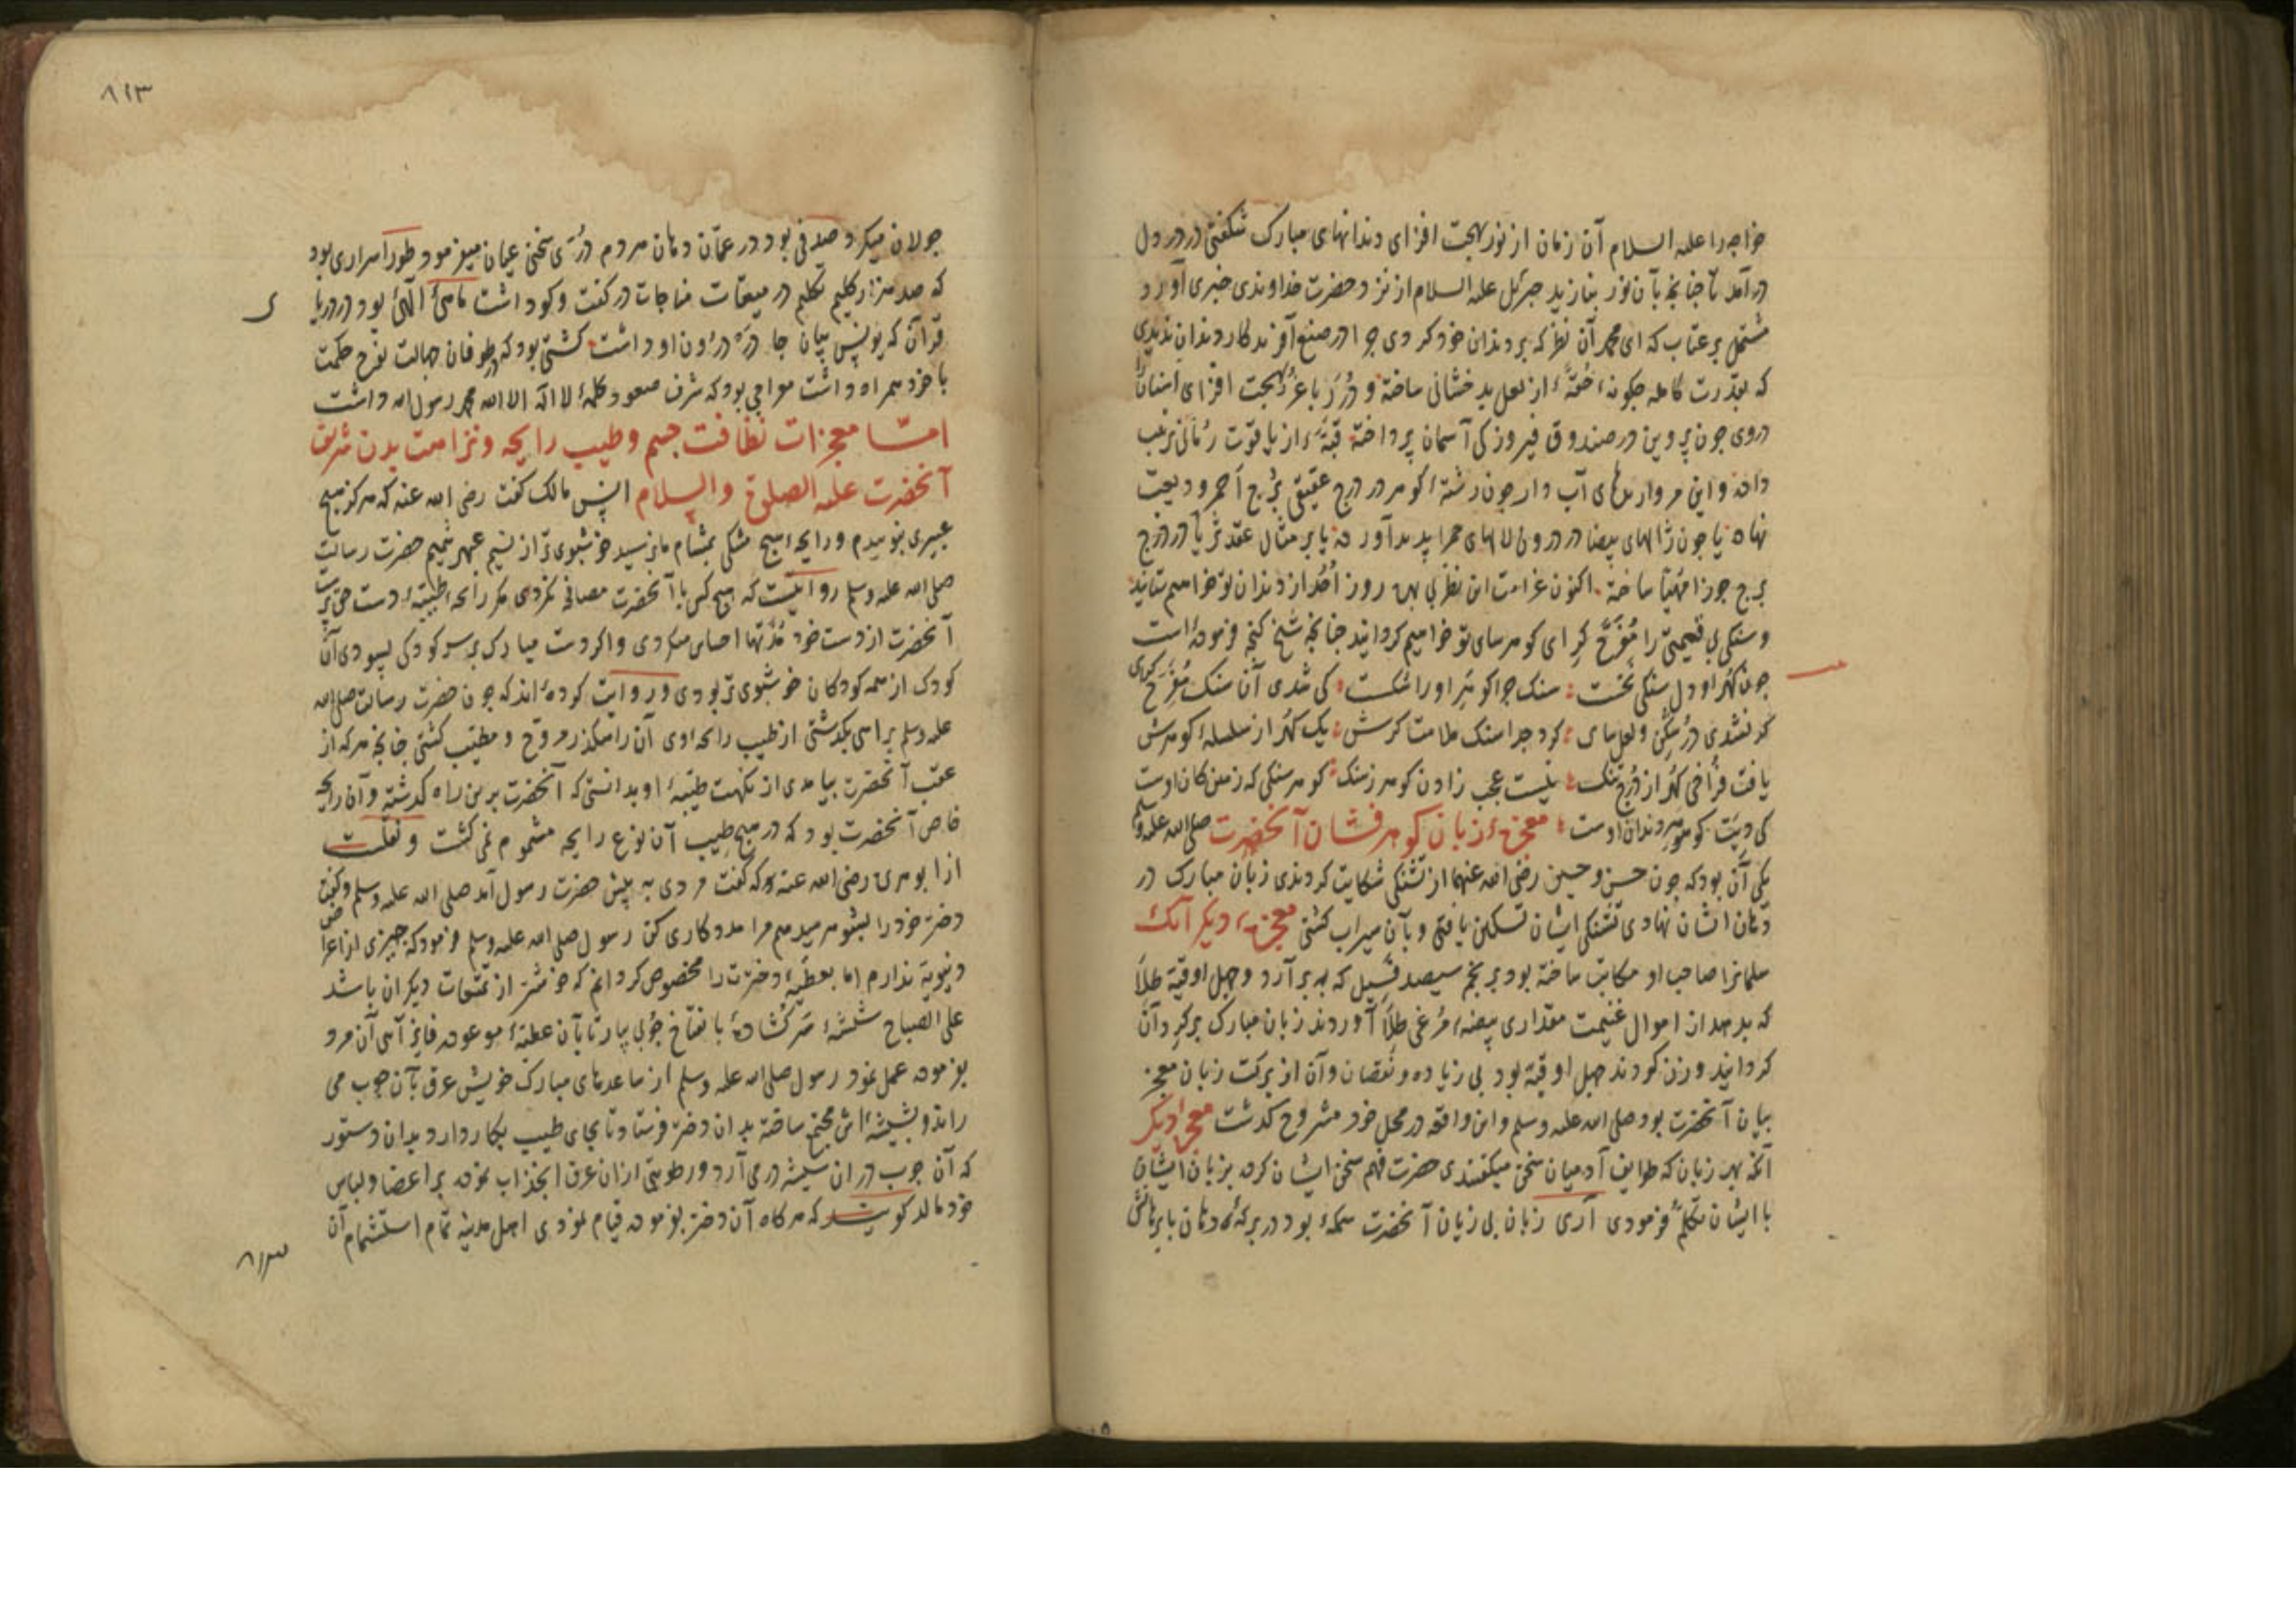 خواجه را علیه السلام آن زمان از نور بهجت افزای دندانهای مبارک شکفتی در دل
در آمد تا چنانچه بآن نور بنازید جبرئیل علیه السلام از نزد حضرت خداوندی خبری آورد
مشتمل بر عتاب که ای محمد آن نظر که بر دندان خود کردی چرا در صنع آفریدکار دندان ندیدی
که بقدرت کامله چکونه حقهٔ از لعل بدخشانی ساخته و دُرَر با عزّ بهجت افزای اسنان
در وی چون پروین در صندوق فیروزکی آسمان پرداخته قبّهٔ از یاقوت رمّانی ترتیب
داده و این مرواریدهای آب دار چون رشتهٔ کوهر در درج عقیق برج احمر ودیعت
نهاده یا چون ژالهای بیضا در درون لالهای حمرا پدید آورده یا بر مثال عقد ثریّا در درج
برج جوزا مهیّا ساخته اکنون غرامت این نظر بی بهره روز اُحُد از دندان تو خواهیم ستانید
و سنکی بی قیمتی را مُفَرِّح کر ای کوهرسای تو خواهیم کردانید چنانچه شیخ کنجه فرموده است
چون کهر او دل سنکی نخست سنک چرا کوهر او را شکست کی شدی آن سنک مُفَرِّح کرای
کر نشدی دُر شکن و لعل سای کرد جدا سنک ملامت کرش یک کهر از سلسلهٔ کوهرش
یافت فراخی کهر از دُرج تنک نیست عجب زادن کوهر ز سنک کوهر سنکی که زمین کان اوست
کی دِیَت کوهر دندان اوست معجزهٔ زبان کوهر فشان آنحضرت صلی الله علیه وسلم
یکی آن بود که چون حسن و حسین رضی الله عنهما از تشنکی شکایت کردندی زبان مبارک در
دهان ایشان نهادی تشنکی ایشان تسکین یافتی و بآن سیراب کشتی معجزهٔ دیکر آنک
سلمانرا صاحب او مکاتب ساخته بود بر نجم سیصد فسیل که ببر آرد و چهل اوقیهٔ طلا
که بدهد از اموال غنیمت مقداری بیضهٔ مرغی طلا آوردند زبان مبارک بر کرد آن
کردانید وزن کردند چهل اوقیه بود بی زیاده و نقصان و آن از برکت زبان معجز
بیان آنحضرت بود صلی الله علیه وسلم و این واقعه در محل خود مشروح کذشت معجزهٔ دیکر
آنکه بهر زبان که طوایف آدمیان سخن میکفتندی حضرت فهم سخن ایشان کرده بزبان ایشان
با ایشان تکلّم فرمودی آری زبان بی زیان آنحضرت سمکهٔ بود در برکهٔ دهان با برهانش
٨١٣
جولان میکرد صدفی بود در عمّان دهان مردم دُرّهٔ سخن عیان میفرمود طور اسراری بود
که صد هزار کلیم تکلیم در میقات مناجات در کفت وکو داشت ماهیٔ الٓهی بود در دریا
قرآن که یونس بیان جا در درون او داشت کشتی بود که در طوفان جهالت نوح حکمت
با خود همراه داشت معراجی بود که شرف صعود کلمهٔ لا اله الا الله محمد رسول الله داشت
امّا معجزات نظافت جسم و طیب رایحه و نزاهت بدن شریف
آنحضرت علیه الصلوة والسلام انس مالک کفت رضی الله عنه که هرکز هیچ
عبیری نبوییدم و رایحهٔ هیچ مشکی بمشام ما نرسید خوشبوی تر از نسیم عبهر شمیم حضرت رسالت
صلی الله علیه وسلم روایتست که هیچ کس با آنحضرت مصافحه نکردی مکر رایحهٔ طیّبهٔ دست حق پرست
آنحضرت از دست خود مُدّتها احساس میکردی و اکر دست مبارک بر سر کودکی بسودی آن
کودک از همه کودکان خوشبوی تر بودی و روایت کرده‌اند که چون حضرت رسالت صلی الله
علیه وسلم براهی بکذشتی از طیب رایحهٔ وی آن راهکذر مروّح و مطیّب کشتی چنانچه هرکه از
عقب آنحضرت بیامدی از نکهت طیّبهٔ او بدانستی که آنحضرت برین راه کذشته و آن رایحه
خاص آنحضرت بود که در هیچ طیب آن نوع رایحه مشموم نمی کشت و نقلست
از ابو هریره رضی الله عنه که کفت مردی به پیش حضرت رسول آمد صلی الله علیه وسلم و کفت
دختر خود را بشوهر میدهم مرا مددکاری کن رسول صلی الله علیه وسلم فرمود که چیزی از اعراض
دنیویّه ندارم اما بعطیّهٔ دخترت را مخصوص کردانم که خوشتر از تمتعات دیکران باشد
علی الصباح شیشهٔ سرکشادهٔ با نفاخ چوبی بیار تا بآن عطیّهٔ موعوده فایز آیی آن مرد
بفرموده عمل نمود رسول صلی الله علیه وسلم از ساعدهای مبارک خویش عرق بآن چوب می
راند و بشیشه اش مجتمع ساخته بدان دختر فرستاد تا بجای طیب بکار دارد بدان دستور
که آن چوب در آن شیشه در می آرد و رطوبتی از آن عرق انجذاب نموده بر اعضا و لباس
خود مالد کویند که هرکاه آن دختر بفرموده قیام نمودی اهل مدینه تمام استشمام آن
٨١٣